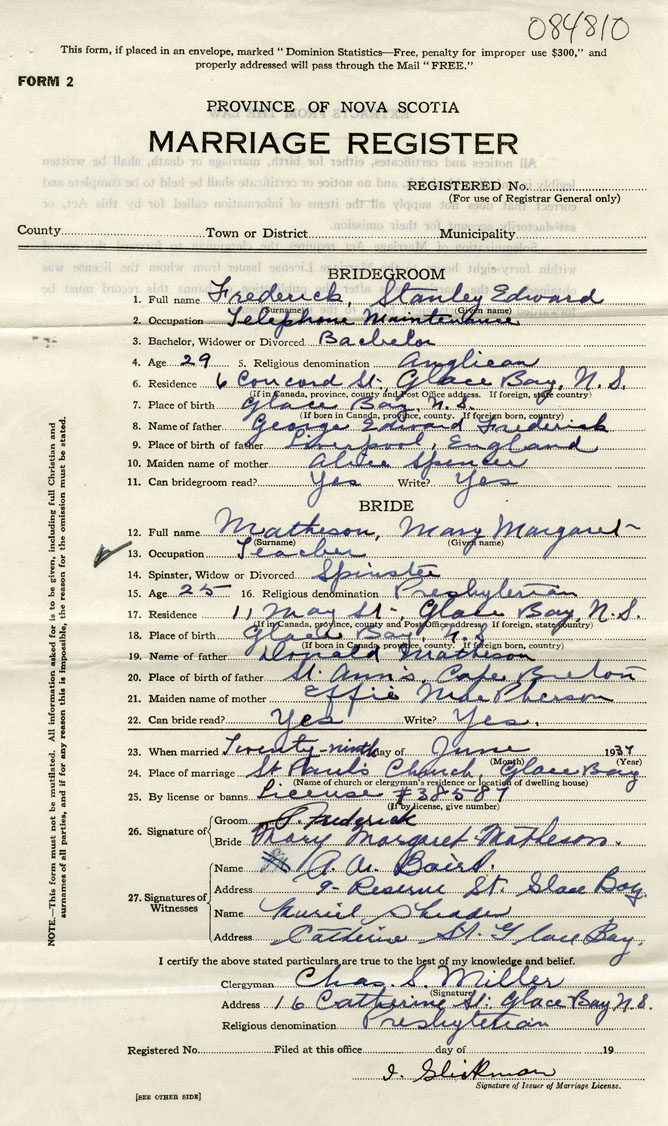 084810
This form, if placed in an envelope, marked "Dominion Statistics—Free, penalty for improper use $300," and
properly addressed will pass through the Mail "FREE."
FORM 2
PROVINCE OF NOVA SCOTIA
MARRIAGE REGISTER
REGISTERED No.
(For use of Registrar General only)
County Town or District Municipality
BRIDEGROOM
1. Full name Frederick, Stanley Edward
(Surname) (Given name)
2. Occupation Telephone Maintenance
3. Bachelor, Widower or Divorced Bachelor
4. Age 29 5. Religious denomination Anglican
6. Residence 6 Concord St., Glace Bay, N.S.
(if in Canada, province, county and Post Office address. If foreign, state country)
7. Place of birth Glace Bay, N.S.
(If born in Canada, province, county. If foreign born, country)
8. Name of father George Edward Frederick
9. Place of birth of father Liverpool, England
10. Maiden name of mother Alice Spencer
11. Can bridegroom read? Yes Write? Yes
BRIDE
12. Full name Matheson, Mary Margaret
(Surname) (Given name)
13. Occupation Teacher
14. Spinster, Widow or Divorced Spinster
15. Age 25 16. Religious denomination Presbyterian
17. Residence 11 May St. Glace Bay, N.S.
(If in Canada, province, county and Post Office address. If foreign, state country)
18. Place of birth Glace Bay, N.S.
(If born in Canada, province, county. If foreign born, country)
19. Name of father Donald Matheson
20. Place of birth of father St. Ann's, Cape Breton
21. Maiden name of mother Effie MacPherson
22. Can bride read? Yes Write? Yes.
23. When married Twenty-ninth day of June 1937
(Month) (Year)
24. Place of marriage St Paul's Church, Glace Bay
(Name of church or clergyman's residence or location of dwelling house)
25. By license or banns License #38587
(If by license, give number)
26. Signature of Groom S. Frederick
Bride Mary Margaret Matheson.
27. Signatures of Witnesses
Name A. W. Baird.
Address 9 Reserve St. Glace Bay.
Name Muriel
Address Catherine St. Glace Bay.
I certify the above stated particulars are true to the best of my knowledge and belief.
Clergyman Chas. S. Miller
(Signature)
Address 16 Catherine St. Glace Bay N.S.
Religious denomination Presbyterian
Registered No. Filed at this office day of 19
I. Glickman
Signature of Issuer of Marriage License.
[SEE OTHER SIDE]
NOTE.—This form must not be mutilated. All information asked for is to be given, including full Christian and
surnames of all parties, and if for any reason this is impossible, the reason for the omission must be stated.